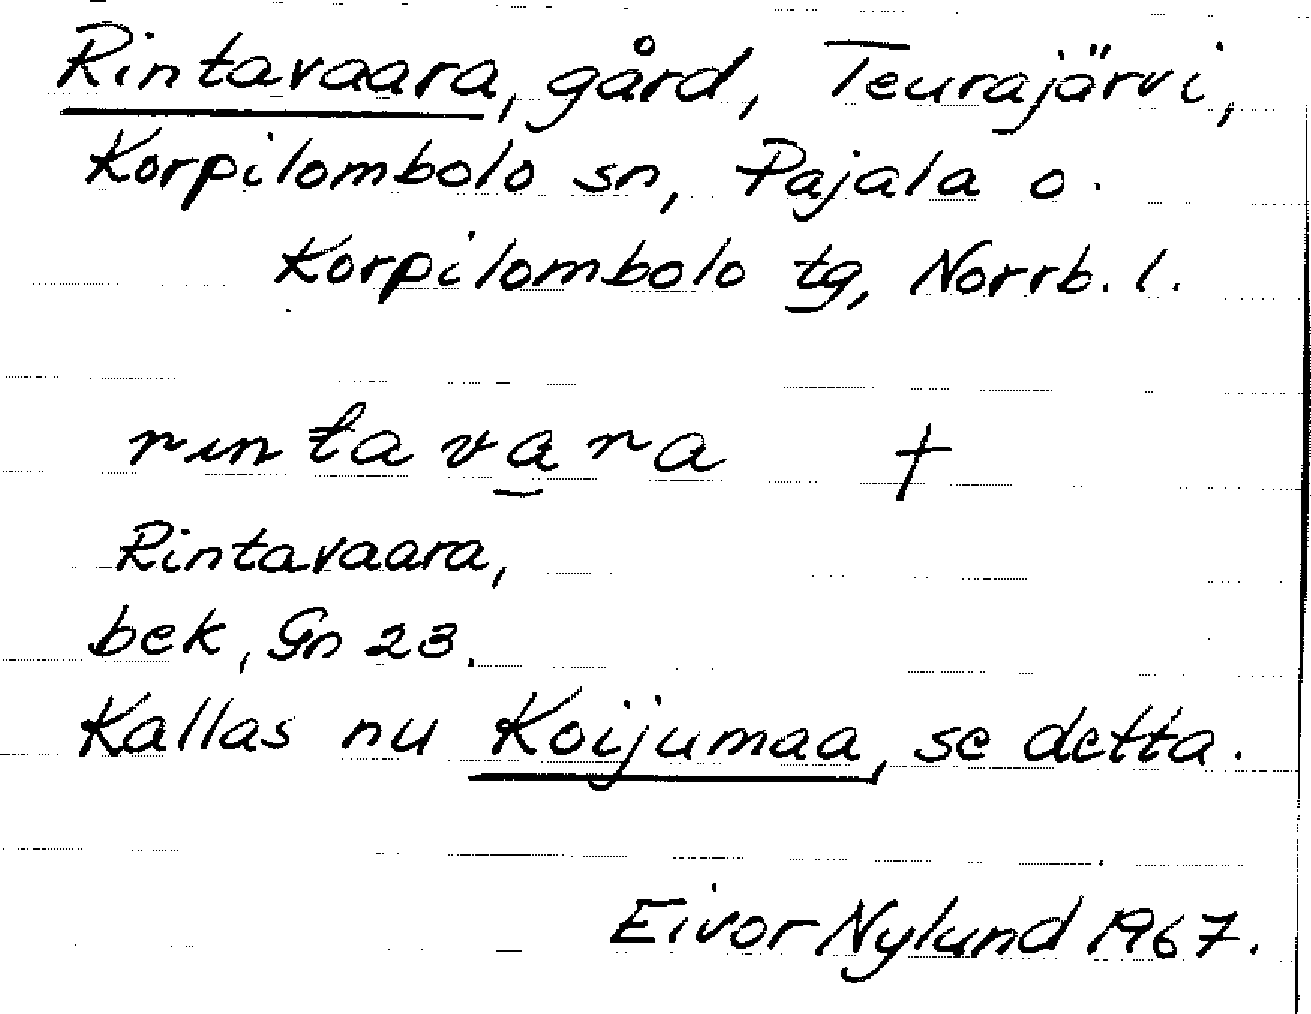 Rintavaara, gård, Teurajärvi,
Korpilombolo sn, Pajala o.
Korpilombolo tg, Norrb. l.
rıntava̱ra †
Rintavaara,
bek, Gn 23.
Kallas nu Koijumaa, se detta.
Eivor Nylund 1967.